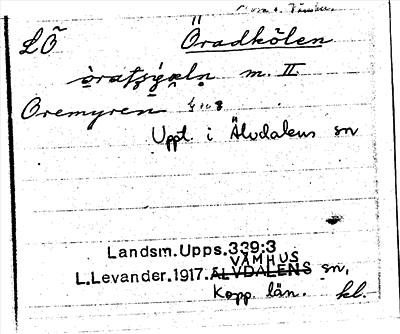 LÖ Öradkölen
m. II.
Oremyren
Uppt. i Älvdalens sn
Landsm. Upps. 339:3
VÅMHUS
L. Levander. 1917. ÄLVDALENS sn,
Kopp. län. kl.